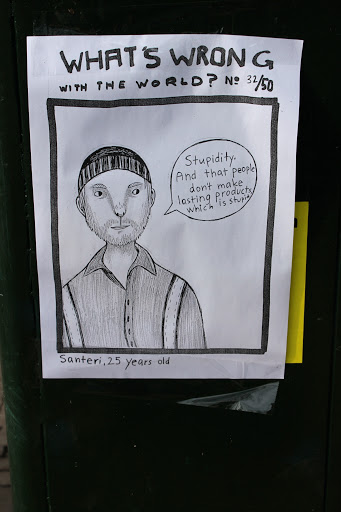 WHAT'S WRONG
WITH THE WORLD? No 32/50
Stupidity.
And that people
don't make
lasting products,
which is stupid.
Santeri, 25 years old